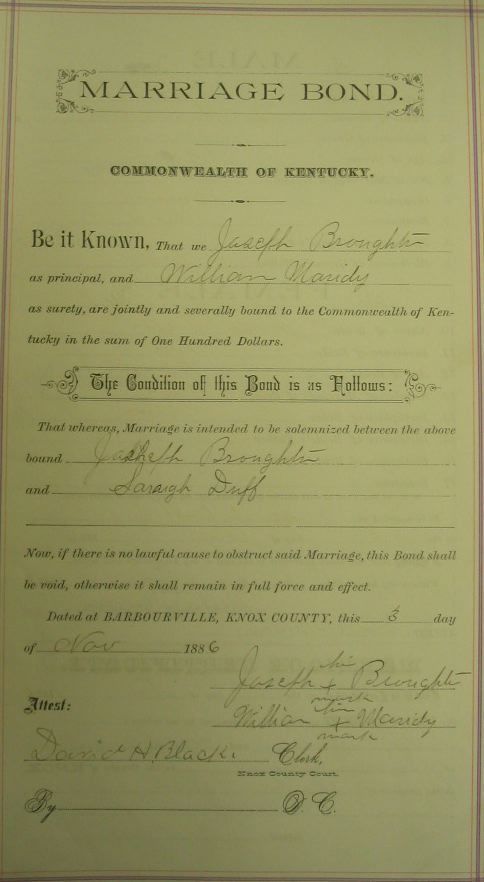 MARRIAGE BOND.
COMMONWEALTH OF KENTUCKY.
Be it Known, That we Joseph Broughton
as principal, and William Maridy
as surety, are jointly and severally bound to the Commonwealth of Ken-
tucky in the sum of One Hundred Dollars.
The Condition of this Bond is as Follows:
That whereas, Marriage is intended to be solemnized between the above
bound Joseph Broughton
and Saraigh Duff
Now, if there is no lawful cause to obstruct said Marriage, this Bond shall
be void, otherwise it shall remain in full force and effect.
Dated at BARBOURVILLE, KNOX COUNTY, this 3 day
of Nov 1886
his
Joseph + Broughton
mark
Attest:
his
William + Maridy
mark
David H. Black Clerk,
Knox County Court.
By D. C.